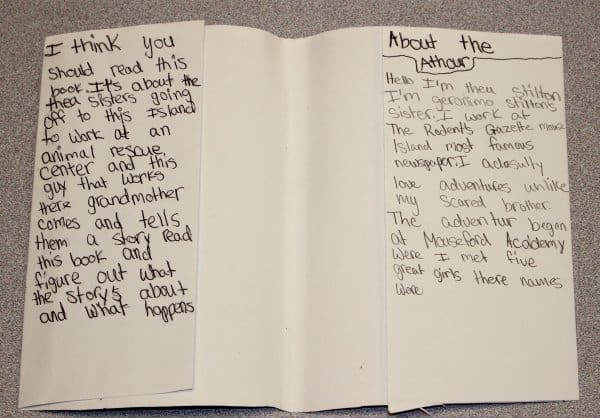 I think you
should read this
book. It's about the
thea sisters going
off to this Island
to work at an
animal rescue
center and this
guy that works
there grandmother
comes and tells
them a story read
this book and
figure out what
the story's about
and what happens
About the
Athour
Hello I'm thea stilton
I'm geronimo stilton's
sister. I work at
The Rodent's Gazette mouse
Island most famous
newspaper. I adosully
love adventures unlike
my scared brother.
The adventur began
at Mouseford Acaddemy
were I met five
great girls there names
were